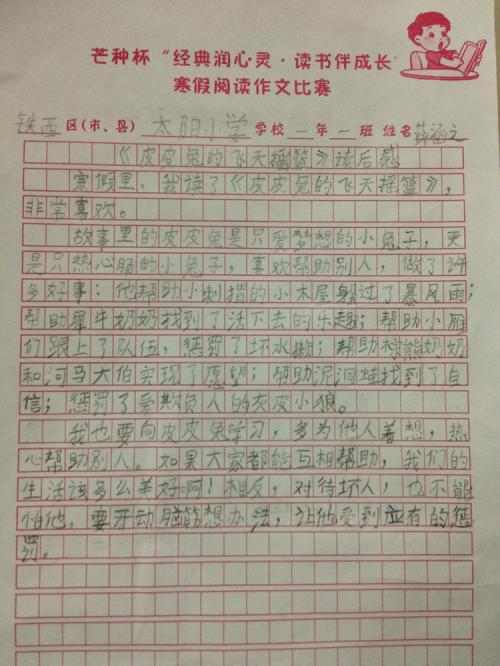 芒种杯“经典润心灵·读书伴成长”
寒假阅读作文比赛
铁西区(市、县) 太阳小学 学校 一年一班 姓名 薛涵之
《皮皮兔的飞天摇篮》读后感
寒假里,我读了《皮皮兔的飞天摇篮》,
非常喜欢。
故事里的皮皮兔是只爱梦想的小兔子,更
是只热心肠的小兔子,喜欢帮助别人,做了许
多好事:他帮助小刺猬的小木屋躲过了暴风雨;
帮助犀牛奶奶找到了活下去的乐趣;帮助小雁
们跟上了队伍,惩罚了坏水獭;帮助棕熊奶奶
和河马大伯实现了愿望;帮助泥洞蛙找到了自
信;惩罚了爱欺负人的灰皮小狼。
我也要向皮皮兔学习,多为他人着想,热
心帮助别人。如果大家都能互相帮助,我们的
生活该多么美好啊!相反,对待坏人,也不能
怕他,要开动脑筋想办法,让他受到应有的惩
罚。